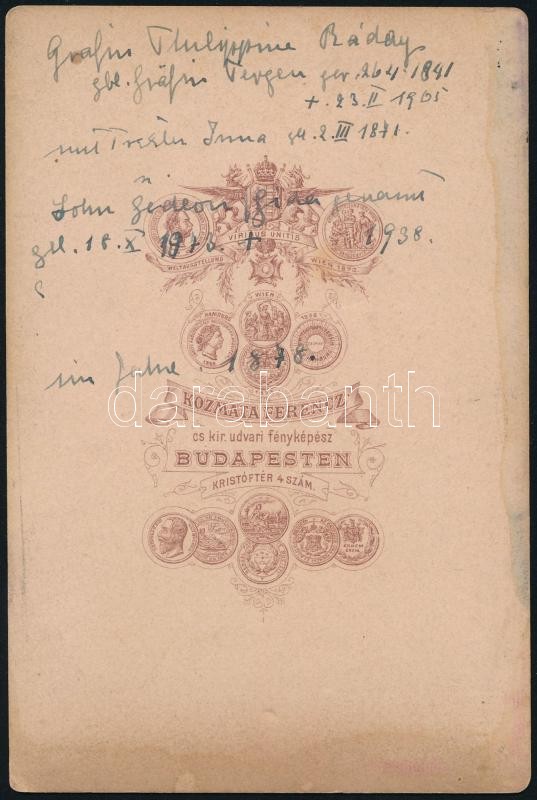 Gräfin Philippine Ráday
gbl. Gräfin Tergen ger. 26 4. 1841
+. 23. II 1905
mit Tochter Inna gbl. 2. III 1871.
u
Sohn Gedeon Gida genannt
gbl. 18. X + 1938.
VIRIBUS UNITIS
WELTAUSSTELLUNG WIEN 1873
WIEN
HAMBURG
1868
im Jahre 1878.
darabanth
KOZMATA FERENCZ
cs kir. udvari fényképész
BUDAPESTEN
KRISTÓFTÉR 4 SZÁM.